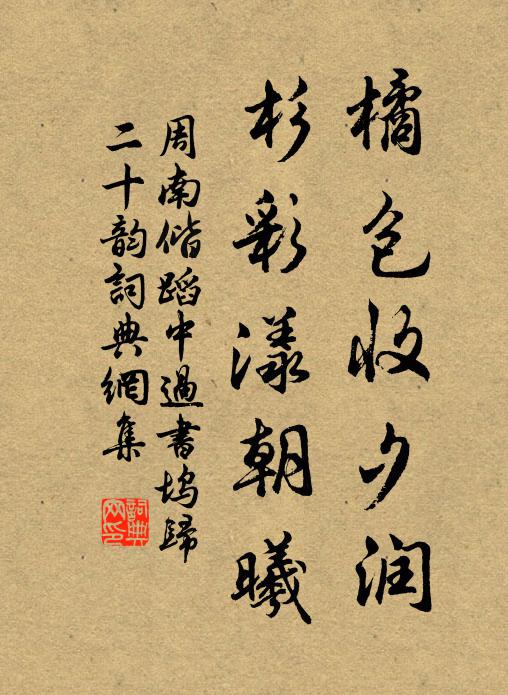 橘包收夕润
杉彩漾朝曦
周南偕蹈中過書坞歸
二十韵詞典網集
詞典网印